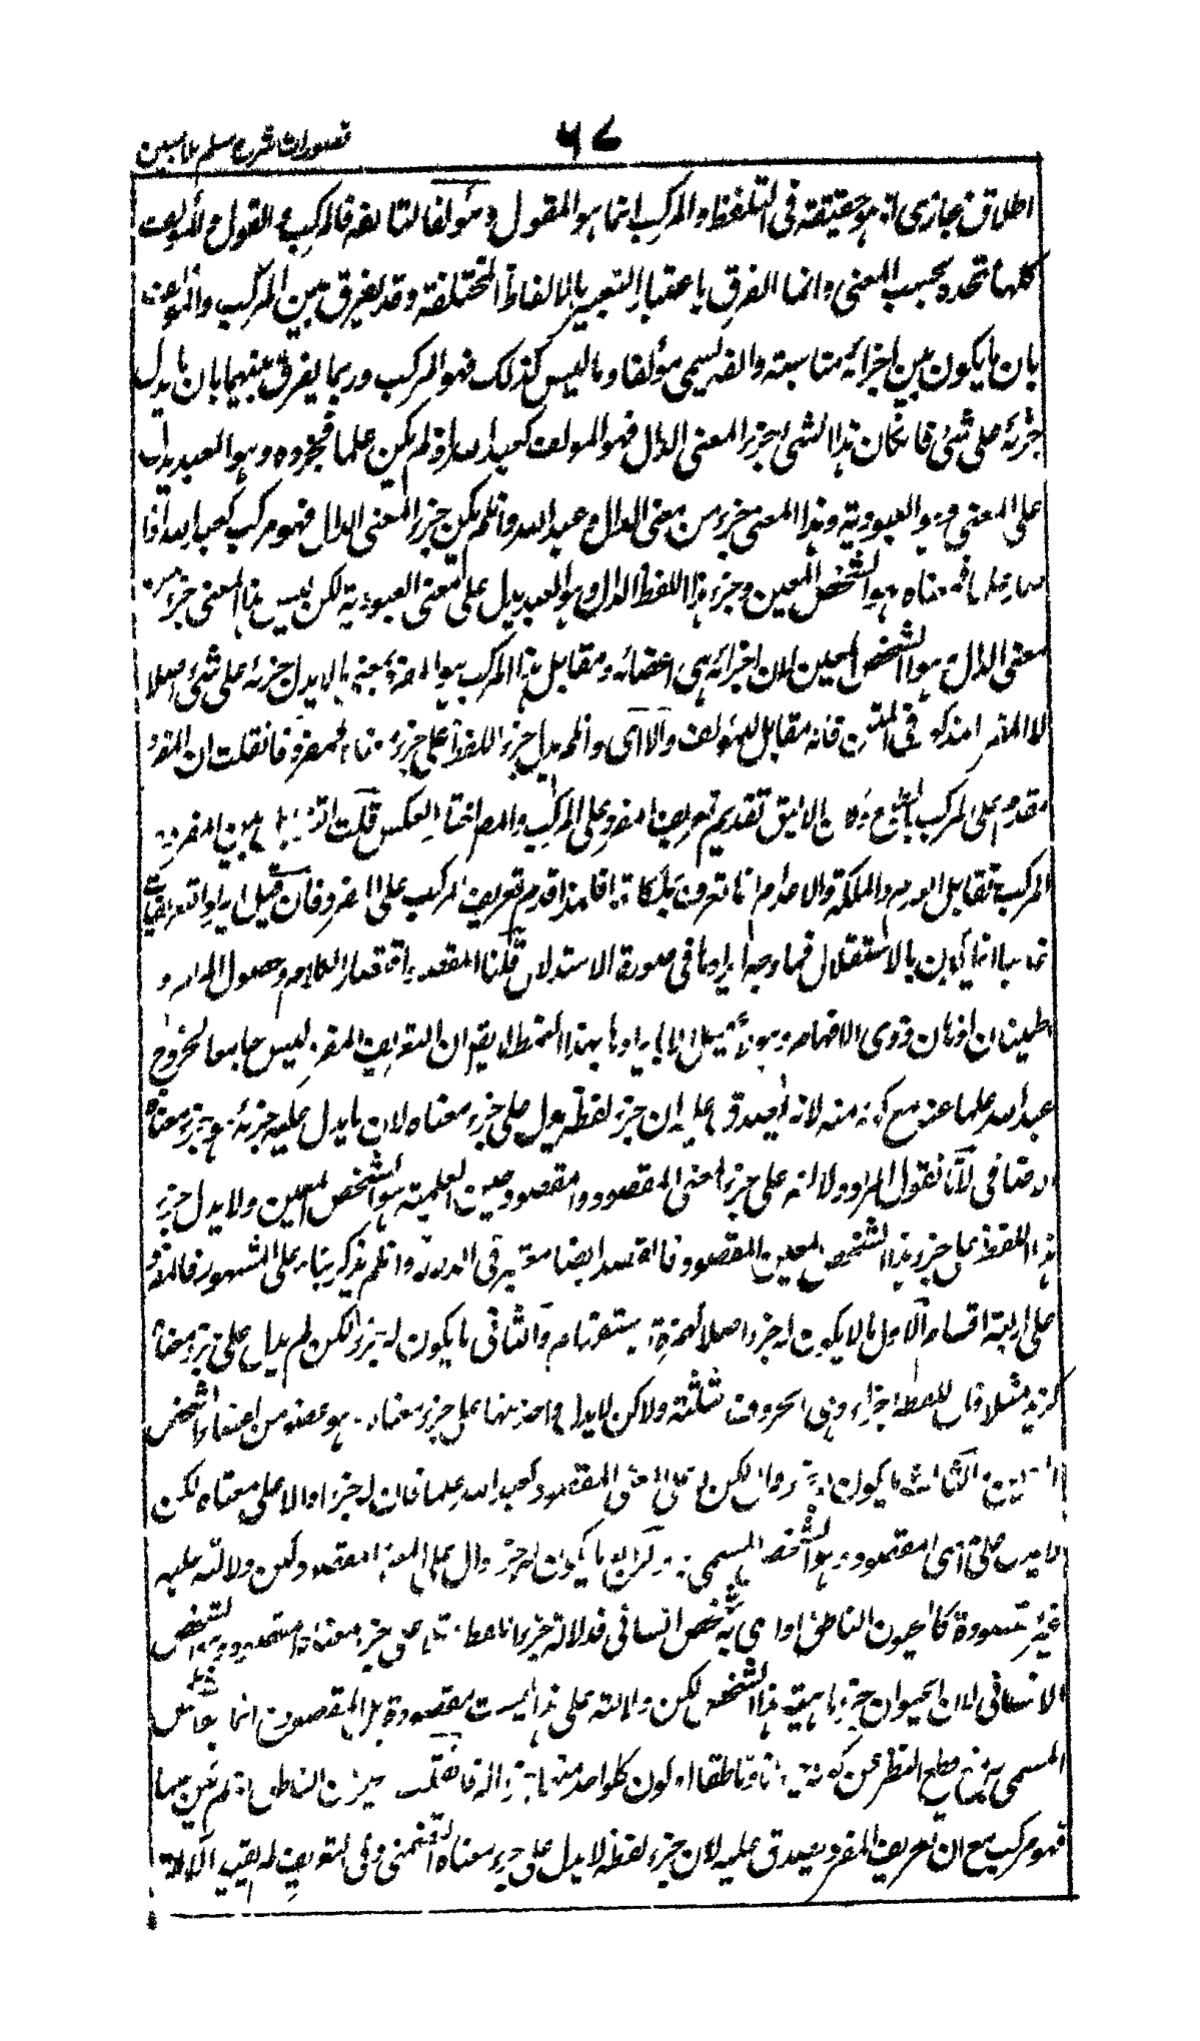 تصورات شرح سلم ملا مبین
٦٧
اطلاق مجازی اذ هو حقیقة فی التلفظ والمرکب انما هو المقول ومؤلفا لتألیفه فالمرکب والقول والمؤلف
کلها متحدة بحسب المعنی وانما الفرق باعتبار التعبیر بالالفاظ المختلفة وقد یفرق بین المرکب والمؤلف
بان ما یکون بین اجزائه مناسبة والفة یسمی مؤلفا وما لیس کذلک فهو المرکب وربما یفرق بینهما بان ما یدل
جزئه علی شئ فان کان هذا الشئ جزء المعنی الدال فهو المؤلف کعبد الله اذا لم یکن علما فجزوه وهو العبد یدل
علی المعنی وهو العبودیة وهذا المعنی جزء من معنی الدال وعبد الله وان لم یکن جزء المعنی الدال فهو مرکب کعبد الله اذا
صار علما فمعناه هو الشخص المعین وجزء هذا اللفظ الدال وهو العبد یدل علی معنی العبودیة لکن لیس هذا المعنی جزء من
معنی الدال وهو الشخص المعین لان اجزائه هی اعضائه ومقابل هذا المرکب هو المفرد بمعنی ما لا یدل جزئه علی شئ اصلا
لا المفرد المذکور فی المتن فانه مقابل للمؤلف والا ای وان لم یدل جزء اللفظ علی جزء معناه فمفرد فان قلت ان المفرد
مقدم علی المرکب بالطبع فالالیق تقدیم تعریف المفرد علی المرکب والمص اختار العکس قلت التقابل بین المفرد و
المرکب تقابل العدم والملکة والاعدام انما تعرف بملکاتها فلهذا قدم تعریف المرکب علی المفرد فان قیل ایراد التعریفات
انما یکون بالاستقلال فما وجه ایرادها فی صورة الاستدلال قلنا المقصد اقتصار الکلام وحصول المرام و
اطمینان اذهان ذوی الافهام وهو لا یحصل الا بایرادها بهذا النمط لا یقه ان التعریف المفرد لیس جامعا لخروج
عبد الله علما عنه مع کونه منه لانه یصدق علیه ان جزء لفظه یدل علی جزء معناه لان ما یدل علیه جزئه هو جزء معناه
الاضافی لانا نقول المراد دلالته علی جزء المعنی المقصود والمقصود حین العلمیة هو الشخص المعین ولا یدل جزء
هذا اللفظ علی جزء هذا الشخص المعین المقصود فالقصد ایضا معتبر فی الدلالة وان لم یذکر بناء علی الشهور فالمفرد
علی اربعة اقسام الاول ما لا یکون له جزء اصلا کهمزة استفهام والثانی ما یکون له جزء لکن لم یدل علی جزء معناه
کزید مثلا فان للفظه اجزاء وهی الحروف ثلثة ولاکن لا یدل واحد منها علی جزء معناه هو عضو من اعضاء الشخص
المعین الثالث ما یکون له جزء دال لکن لا علی المعنی المقصود کعبد الله علما فان له جزء دالا علی معناه لکن
لا یدل علی المعنی المقصود وهو الشخص المسمی به والرابع ما یکون له جزء دال علی المعنی المقصود لکن دلالته علیه
غیر مقصودة کالحیوان الناطق اذا سمی به شخص انسانی فدلالة جزء علی جزء معناه المقصود وهو الشخص
الانسانی لان الحیوان جزء ماهیة هذا الشخص لکن دلالته علی هذا لیست مقصودة بل المقصود انما هو الشخص
المسمی به مع قطع النظر عن کونه حیوانا وناطقا او لون کلواحد منهما جزء له فان قلت حیوان الناطق اذا لم یکن علما
فهو مرکب مع ان تعریف المفرد یصدق علیه لان جزء لفظه لا یدل علی جزء معناه التضمنی وفی التعریف لم یقید الدلالة